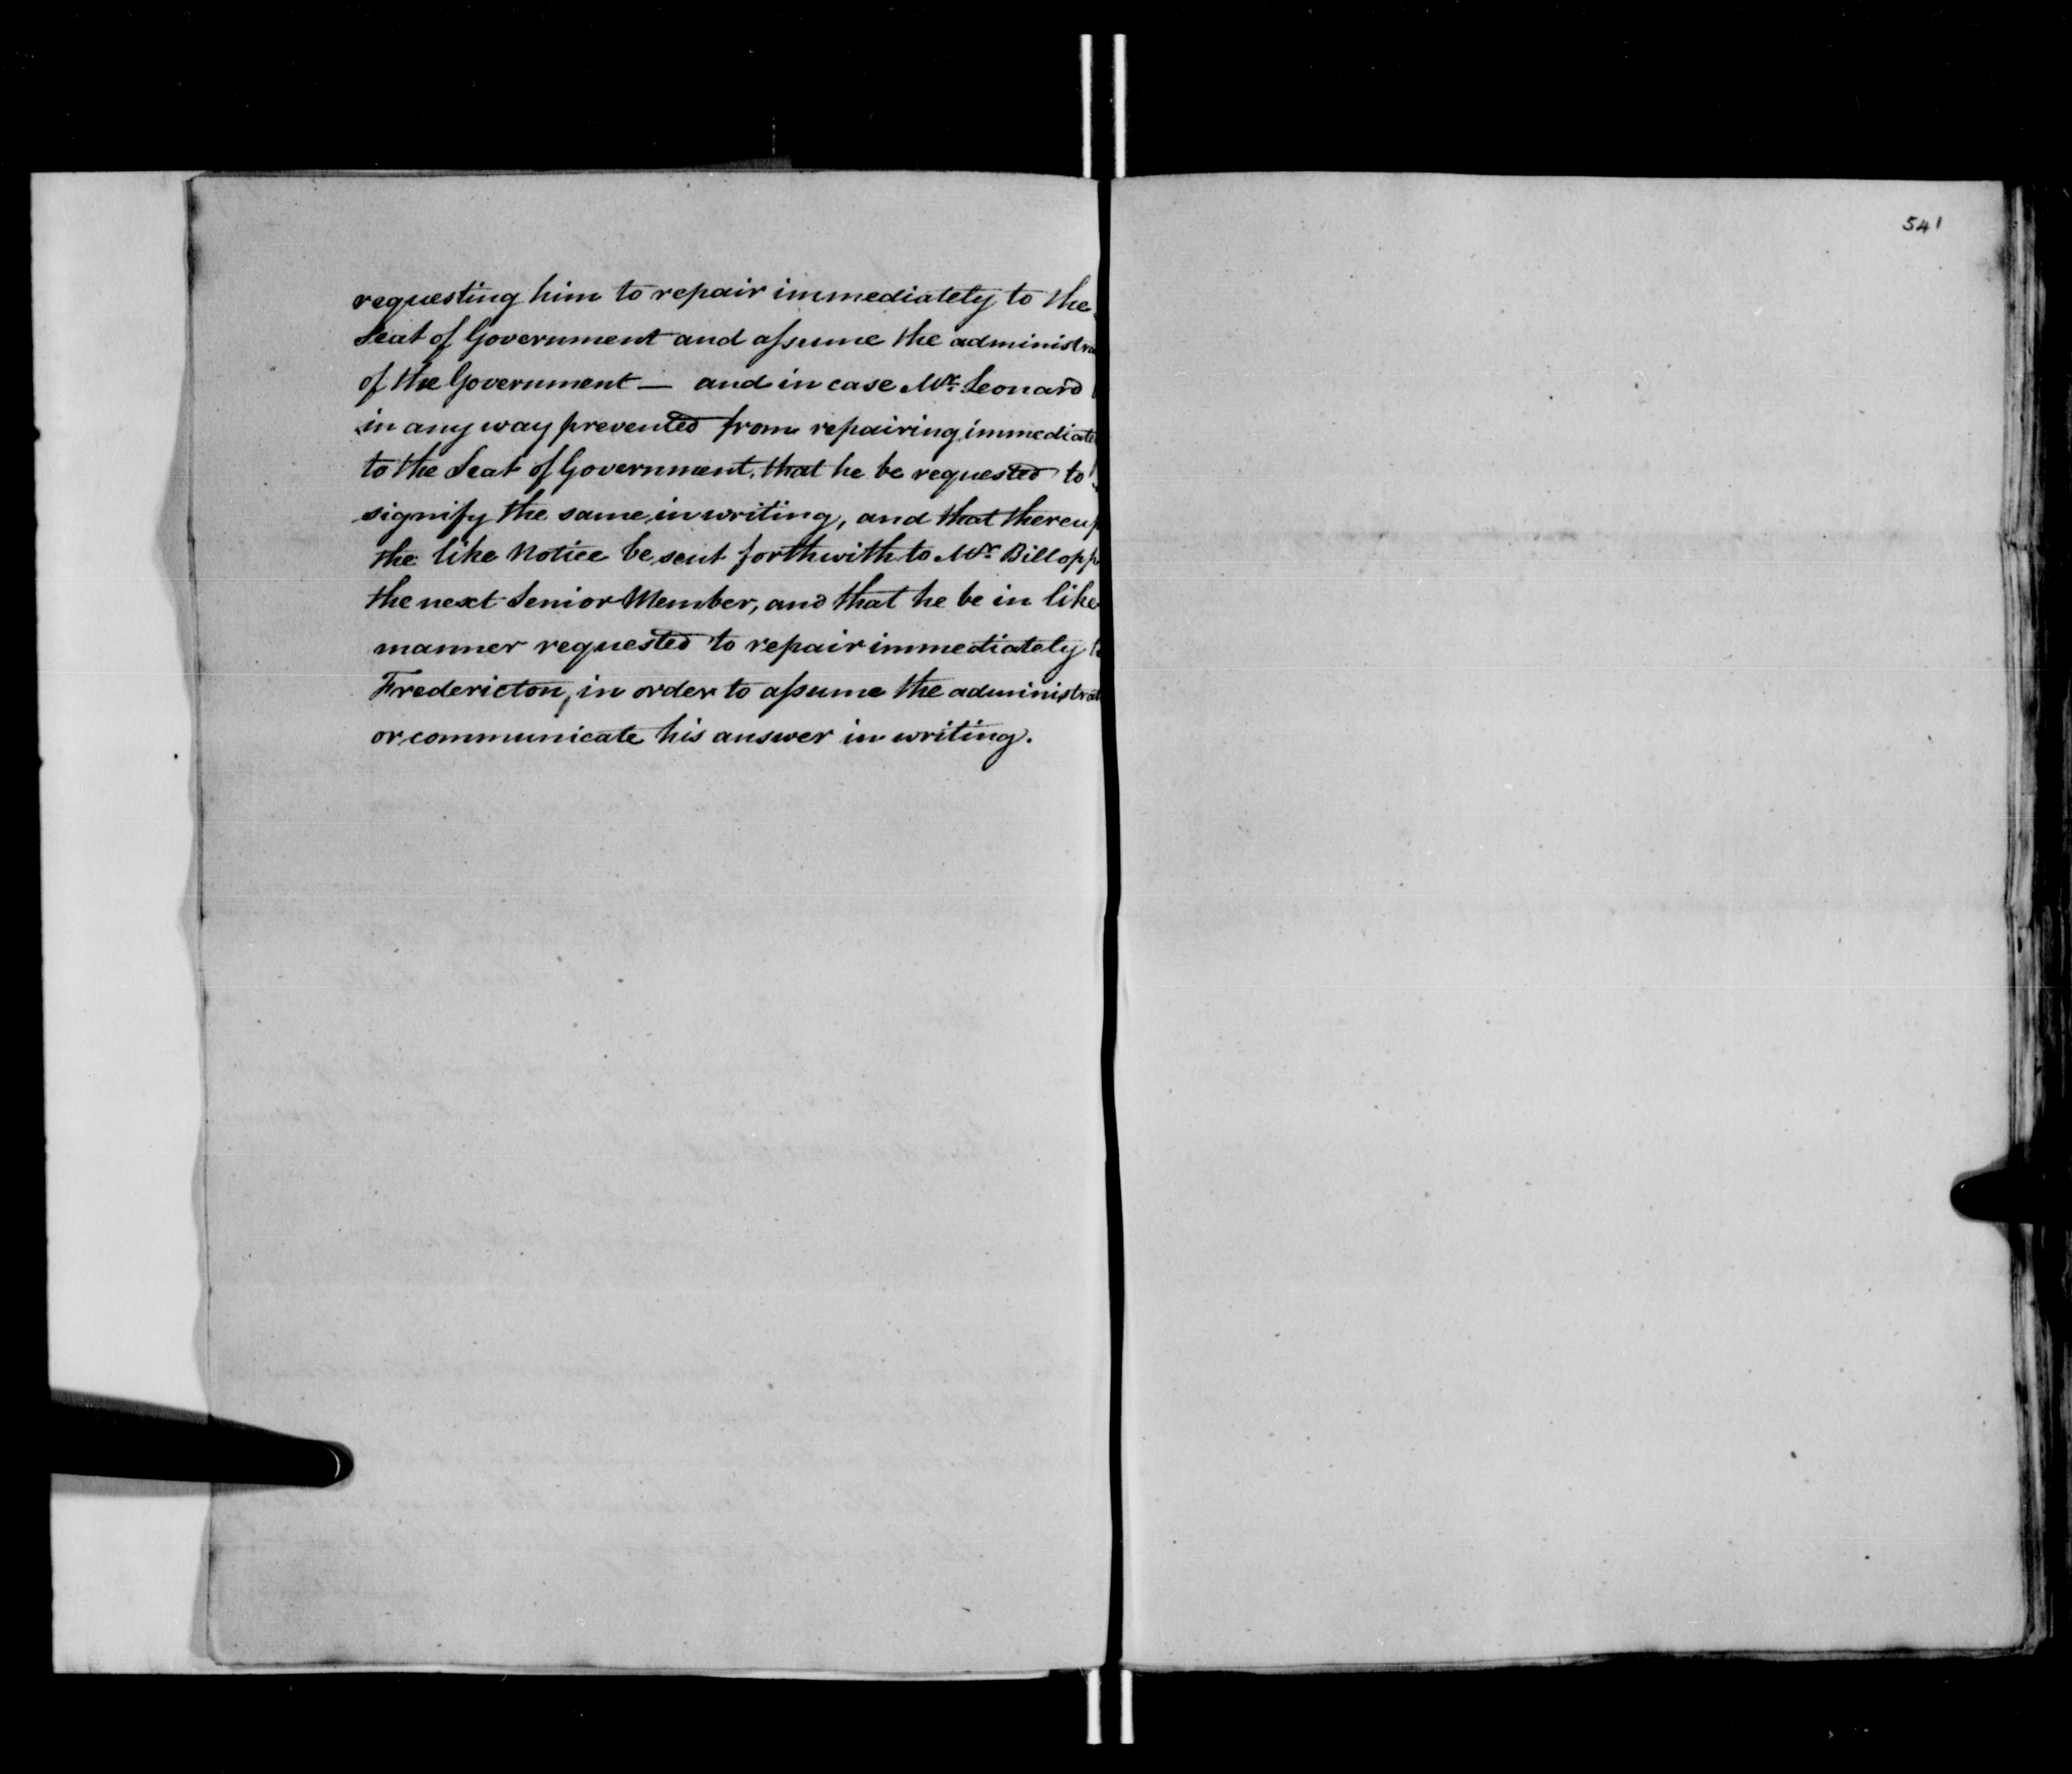 requesting him to repair immediately to the
Seat of Government and assume the administra
of the Government — and in case Mr. Leonard
in any way prevented from repairing immediate
to the Seat of Government, that he be requested to
signify the same in writing, and that thereup
the like Notice be sent forthwith to Mr. Billopp
the next Senior Member, and that he be in like
manner requested to repair immediately t
Fredericton, in order to assume the administrat
or communicate his answer in writing.
541